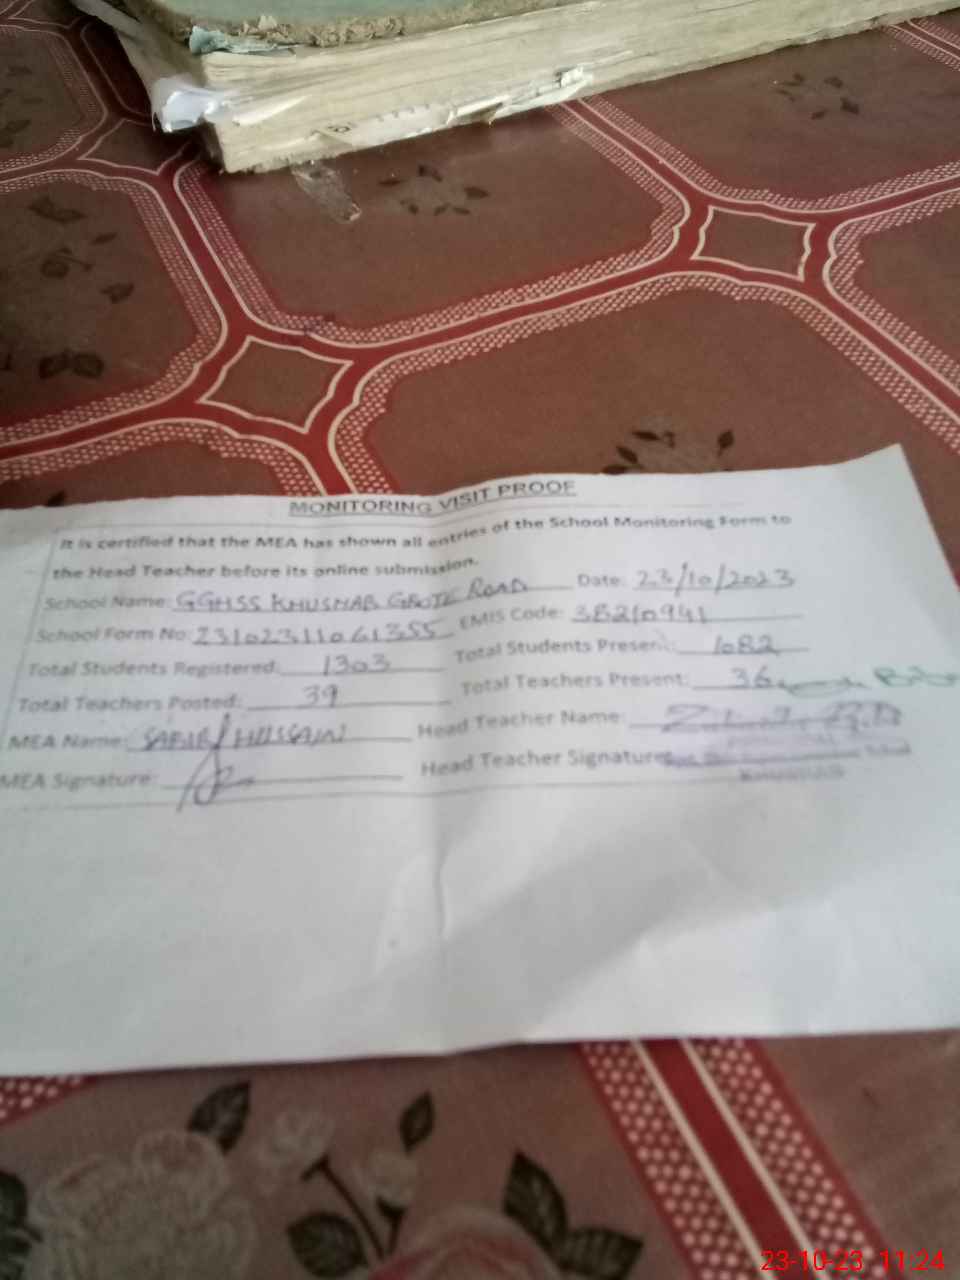 MONITORING VISIT PROOF
It is certified that the MEA has shown all entries of the School Monitoring Form to
the Head Teacher before its online submission.
School Name: GGHSS KHUSHAB GROTE ROAD Date: 23/10/2023
School Form No: EMIS Code: 38210941
Total Students Registered: 1303 Total Students Present: 1082
Total Teachers Posted: 39 Total Teachers Present: 36
MEA Name: SABIR HUSSAIN Head Teacher Name:
MEA Signature: Head Teacher Signature:
23-10-23 11:24